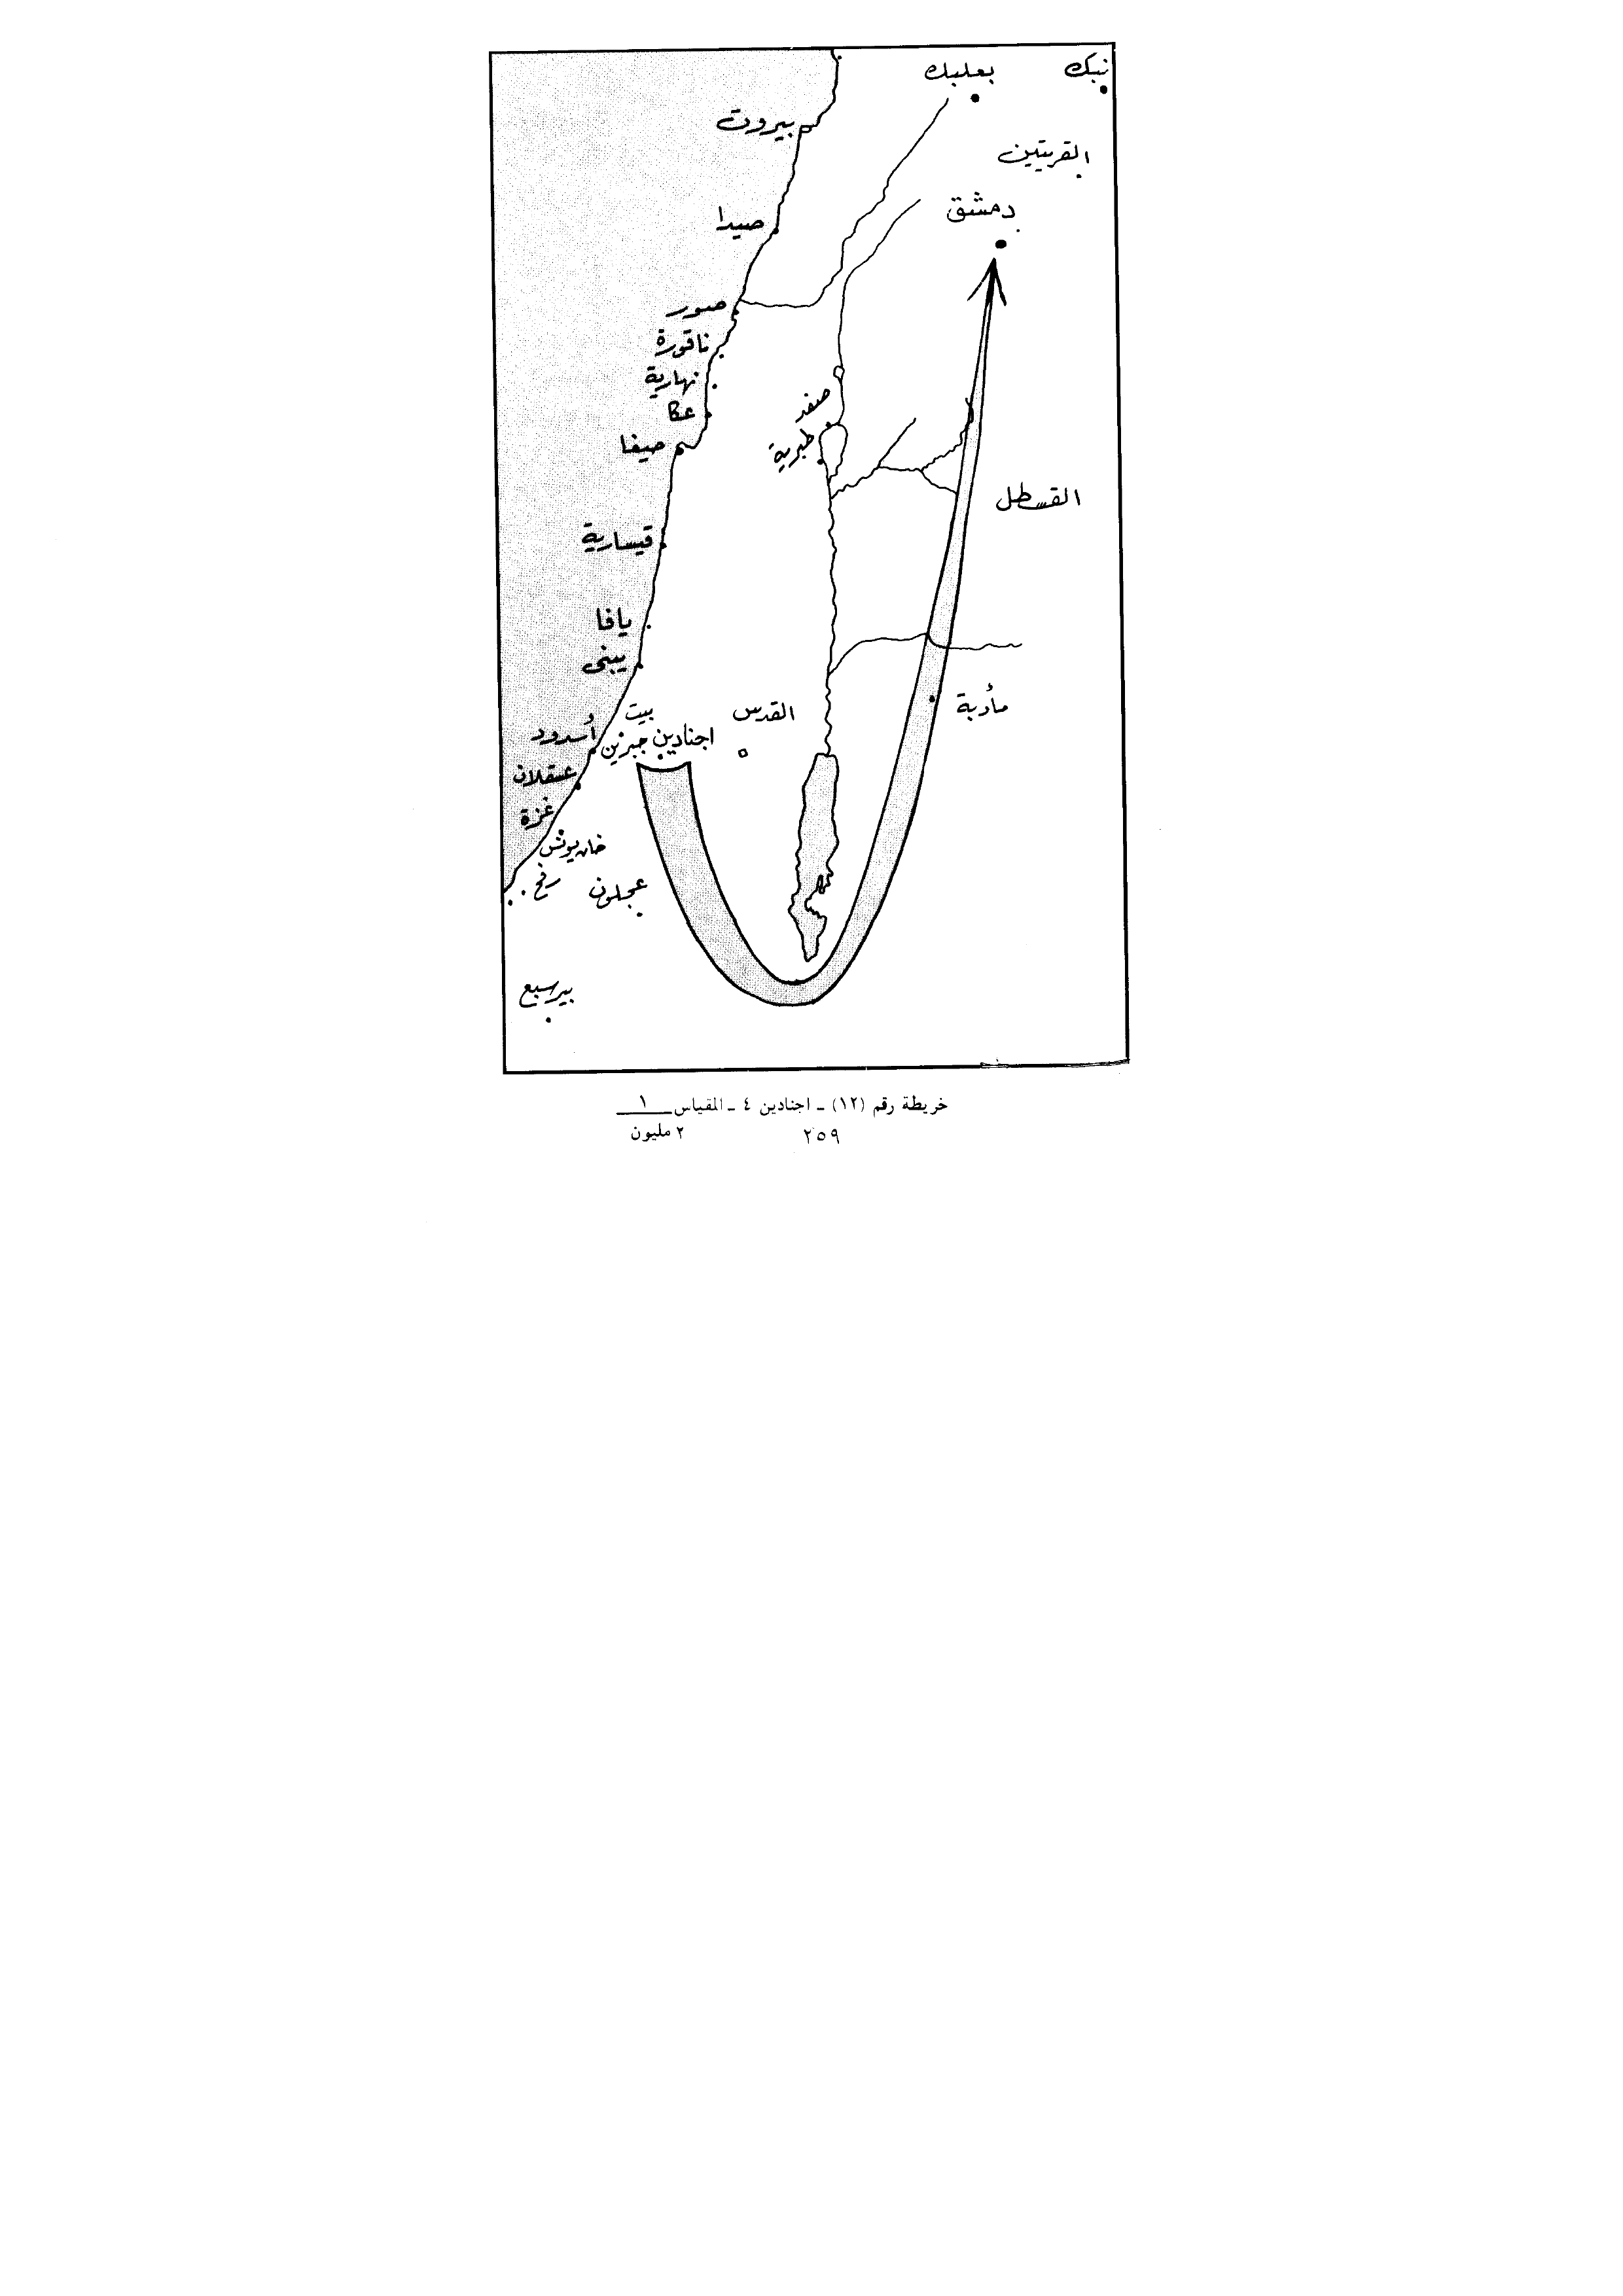 نبك
بعلبك
بيروت
القريتين
دمشق
صيدا
صور
ناقورة
نهارية
عكا
صفد
حيفا
طبرية
القسطل
قيسارية
يافا
يبنى
مأدبة
القدس
بيت
اجنادين جبرين
أسدود
عسقلان
غزة
خان يونس
رفح
عجلون
بيرسبع
خريطة رقم (١٢) ـ اجنادين ٤ ـ المقياس ١
٢ مليون
٢٥٩